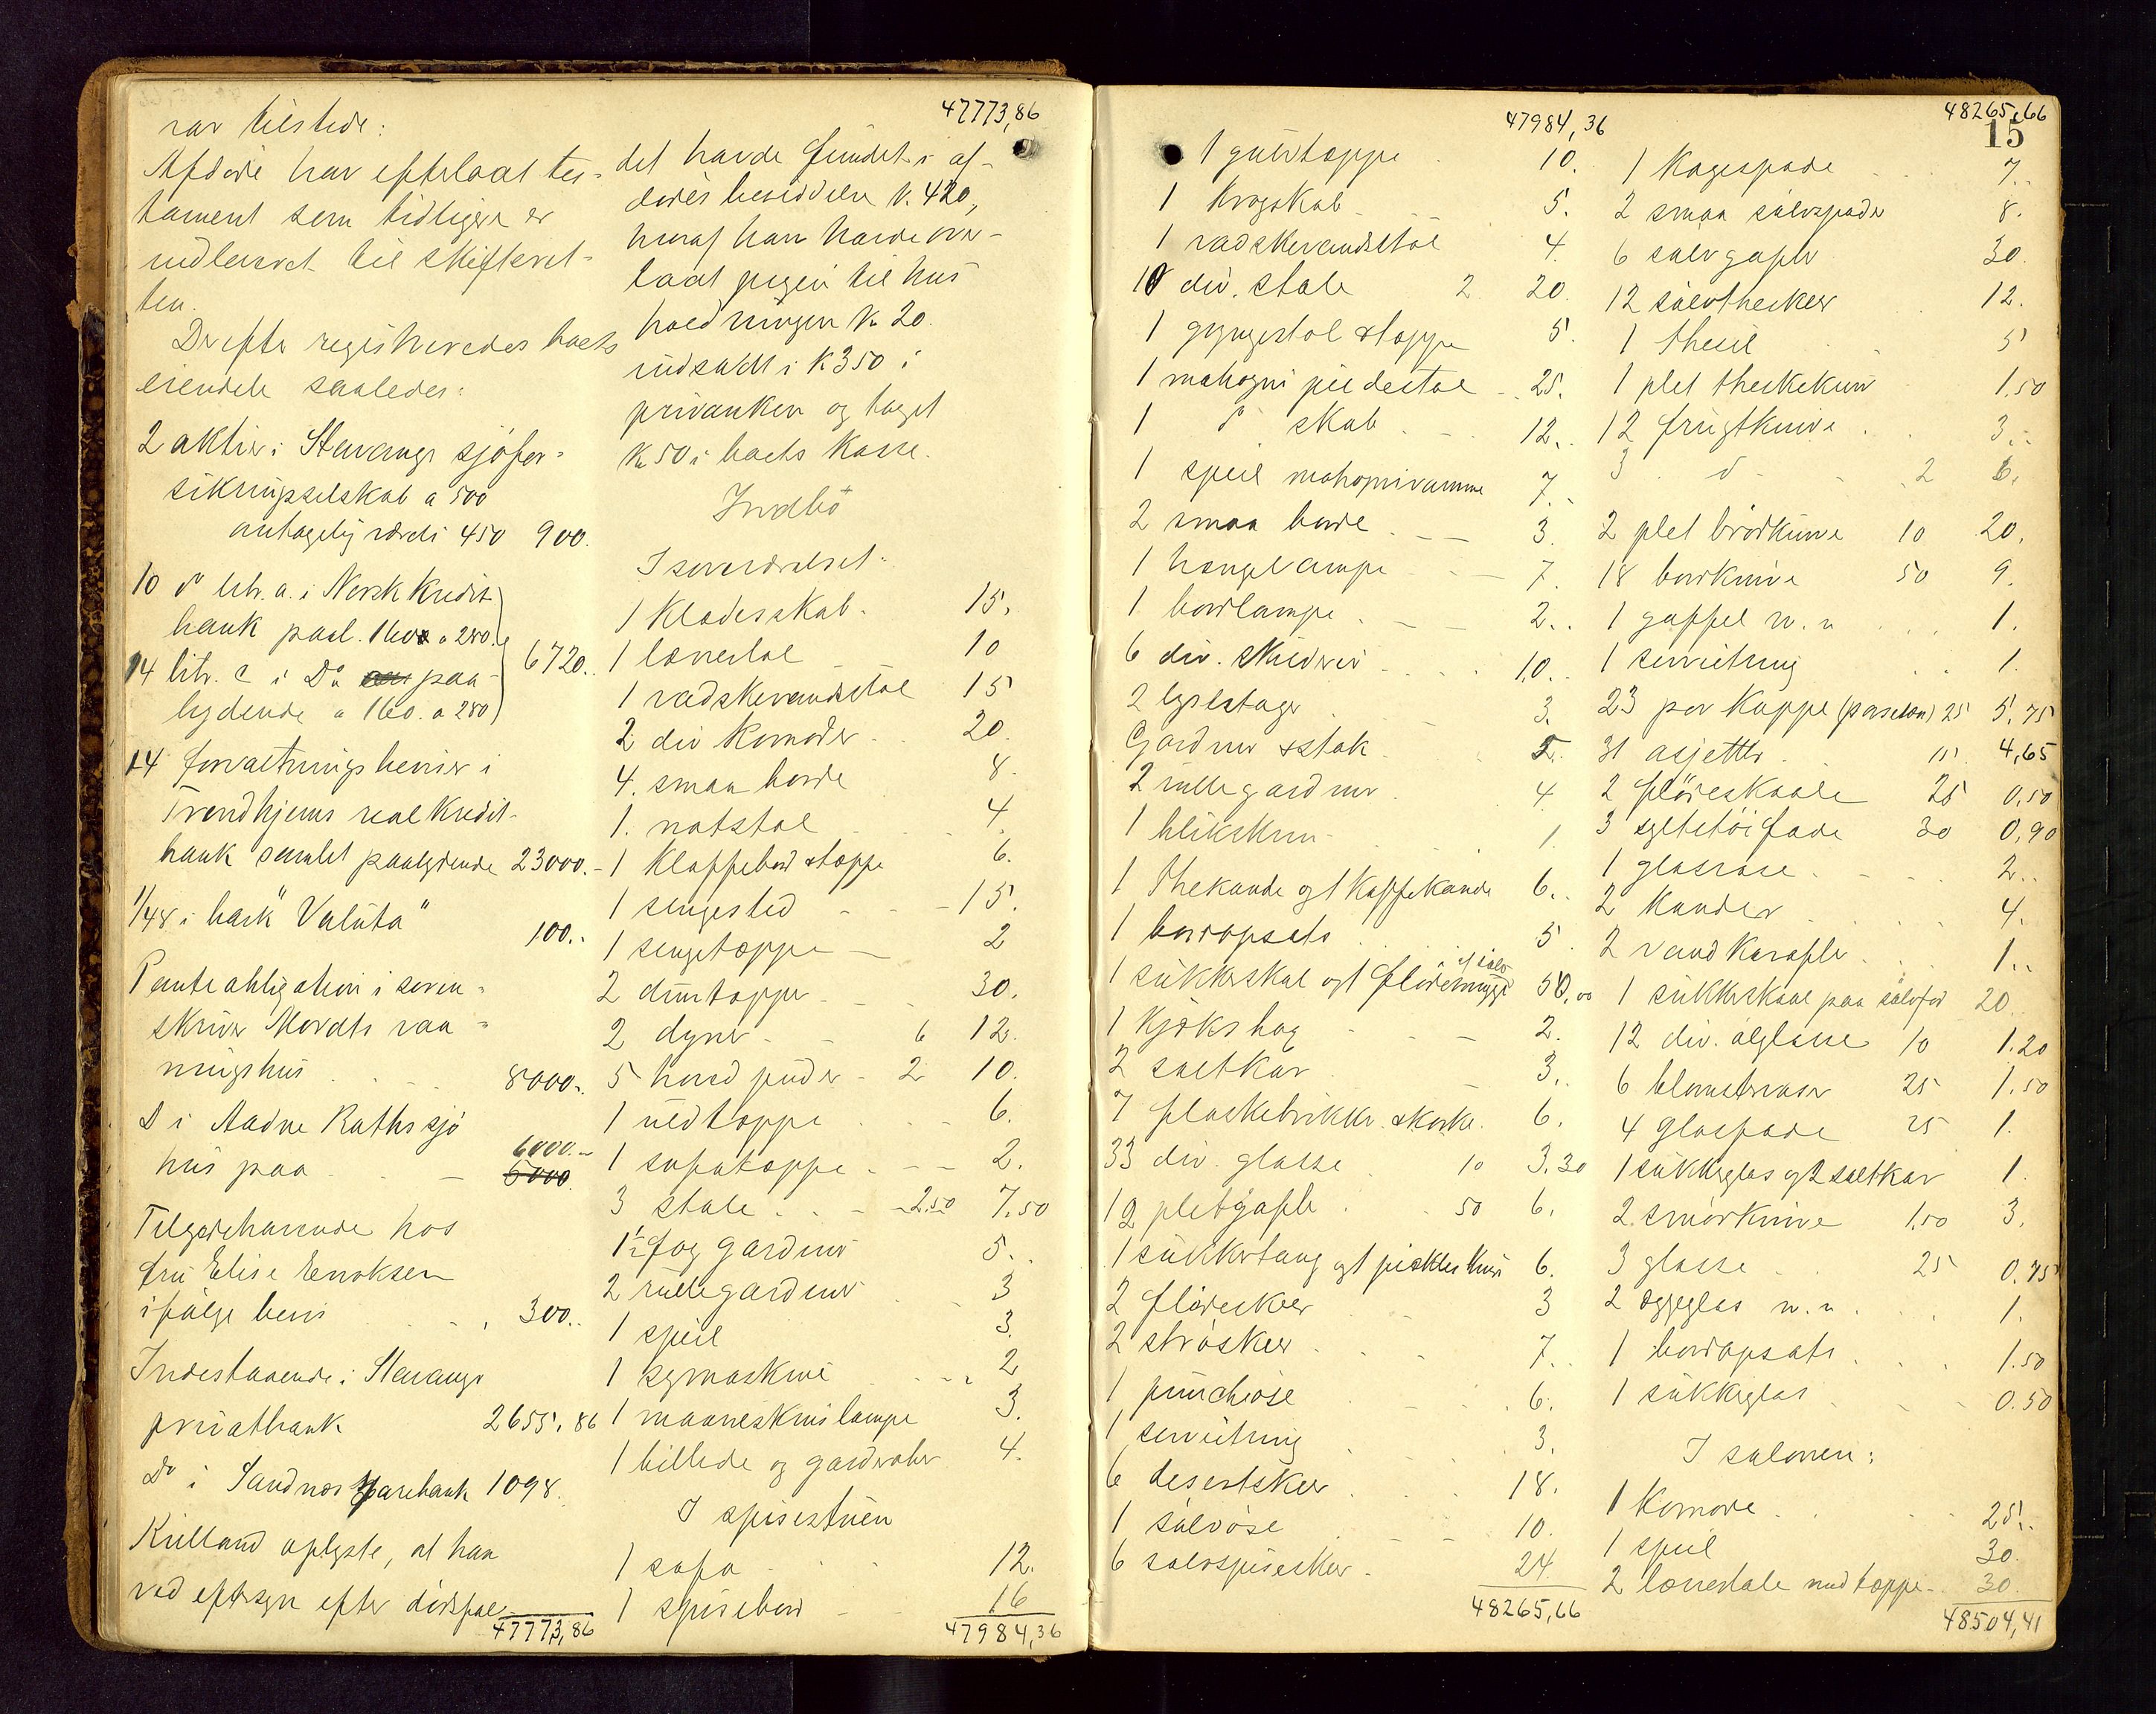 var tilstede:
Afdøde har efterladt tes-
tament som tidligere er
indleveret til skifteret-
ten.
Derefter registreredes boets
eiendele saaledes:
2 aktier i Stavanger sjøfor-
sikringsselskab a 500
antagelig værdi 450 900.
10 do litr. a. i Norsk Kredit
bank paal. 1600 a 280.
14 litr. c i Do paa-
lydende a 160. a 280) 6720..
14 forvaltningsbeviser i
Trondhjems realkredit-
bank samlet paalydende 23000.-
1/48 i bark "Valuta" 100..
Panteobligation i soren-
skriver Mordts vaa-
ningshus 8000.
Do i Aadne Raths sjø 6000.-
hus paa 5000
Tilgodehavende hos
fru Elise Enoksen
ifølge bevis 300..
Indestaaende i Stavanger
privatbank 2655,86
Do i Sandnes Sparebank 1098.
Kielland oplyste, at han
ved eftersyn efter dødsfal
47773,86
47773,86
det havde fundet i af-
dødes besiddelse k. 420,
hvoraf han havde over-
ladt pigen til hus
holdningen k 20.
indsadt i k 350 i
privanken og taget
k 50 i boets kasse.
Indbo
I soveværelset:
1 klædesskab. 15,
1 lænestol 10
1 vadskevandsstol 15
2 div komoder 20.
4. smaa borde 8.
1. natstol 4.
1 klappebord & tæppe 6.
1 sengested 15.
1 sengetæppe 2
2 duntæpper 30.
2 dyner 6 12.
5 hovedpuder 2 10.
1 uldtæppe 6.
1 sofatæppe 2.
3 stole 2.50 7.50
1 1/2 fag gardiner 5.
2 rullegardiner 3
1 speil 3.
1 symaskine 2
1 maaneskinslampe 3.
1 billede og garderober 4.
I spisestuen
1 sofa 12.
1 spisebord 16
47984,36
47984,36
1 gulvtæppe 10.
1 krogskab 5.
1 vadskevandsstol 4.
10 div. stole 2 20.
1 gyngestol & tæppe 5.
1 mahogni piedestal 25.
1 do skab 12..
1 speil mahogniramme 7.
2 smaa borde 3.
1 hængelampe 7.
1 bordlampe 2..
6 div. skilderier 10.
2 lysestager 3.
Gardiner & stok 5.
2 rullegardiner 4
1 blikskrin 1.
1 thekande og 1 kaffekande 6..
1 bordopsats 5.
1 sukkerskaal og 1 flødemugge af sølv 50.00
1 kjøksbog 2.
2 saltkar 3..
7 flaskebrikker & korke. 6.
33 div glasse 10 3.30
12 pletgafler 50 6.
1 sukkertang og 1 pickleskniv 6.
2 flødeskeer 3
2 strøskeer 7..
1 puncheøse 6.
1 serviettring 3.
6 desertskeer 18.
1 sølvøse 10.
6 sølvspiseskeer 24.
48265,66
48265,66
15
1 kagespade 7..
2 smaa sølvspader 8.
6 sølvgafler 30.
12 sølvtheskeer 12.
1 thesil 5
1 plet theskekurv 1.50
12 frugtknive 3..
3 do 2 6.
2 plet brødkurve 10 20.
18 bordknive 50 9.
1 gaffel m. m 1.
1 serviettring 1.
23 par koppe (porselæn) 25 5,75
31 asjetter 15 4,65
2 flødeskaale 25 0,50
3 syltetøifade 30 0,90
1 glasvase 2..
2 kander 4.
2 vandkarafler 1..
1 sukkerskaal paa sølvfod 20.
12 div. ølglasse 10 1.20
6 blomstervaser 25 1.50
4 glasfade 25 1.
1 sukkerglas og 2 saltkar 1.
2 smørknive 1.50 3.
3 glasse 25 0,75
2 æggeglas m. m. 1.
1 bordopsats 1.50
1 sukkerglas 0.50
I salonen:
1 komode 25..
1 speil 30.
2 lænestole med tæppe 30.
48504,41